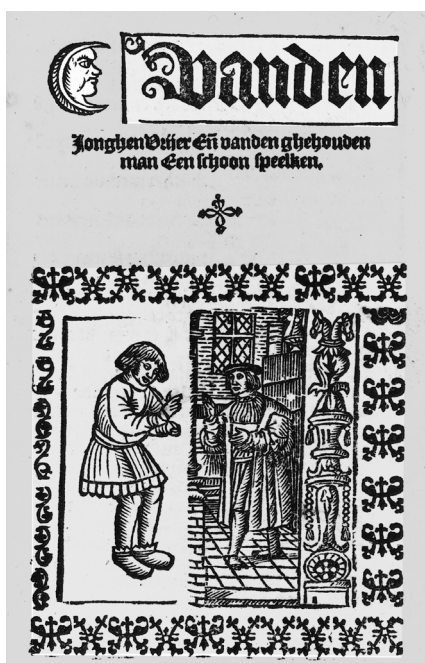 Vanden
Jonghen Vrijer Eñ vanden ghehouden
man Een schoon speelken.